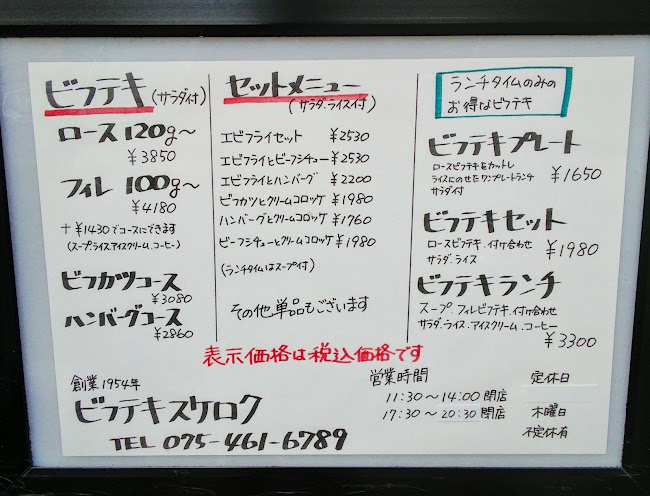 ビフテキ(サラダ付)
ロース120g~
¥3850
フィレ 100g~
¥4180
+¥1430でコースにできます
(スープ.ライス.アイスクリーム.コーヒー)
ビフカツコース
¥3080
ハンバーグコース
¥2860
セットメニュー
(サラダ.ライス付)
エビフライセット ¥2530
エビフライとビーフシチュー ¥2530
エビフライとハンバーグ ¥2200
ビフカツとクリームコロッケ ¥1980
ハンバーグとクリームコロッケ ¥1760
ビーフシチューとクリームコロッケ ¥1980
(ランチタイムはスープ付)
その他単品もございます
ランチタイムのみの
お得なビフテキ
ビフテキプレート
ロースビフテキをカットし
ライスにのせたワンプレートランチ
サラダ付
¥1650
ビフテキセット
ロースビフテキ.付け合わせ
サラダ.ライス
¥1980
ビフテキランチ
スープ.フィレビフテキ.付け合わせ
サラダ.ライス.アイスクリーム.コーヒー
¥3300
表示価格は税込価格です
創業1954年
ビフテキスケロク
TEL 075-461-6789
営業時間
11:30~14:00閉店
17:30~20:30閉店
定休日
木曜日
不定休有